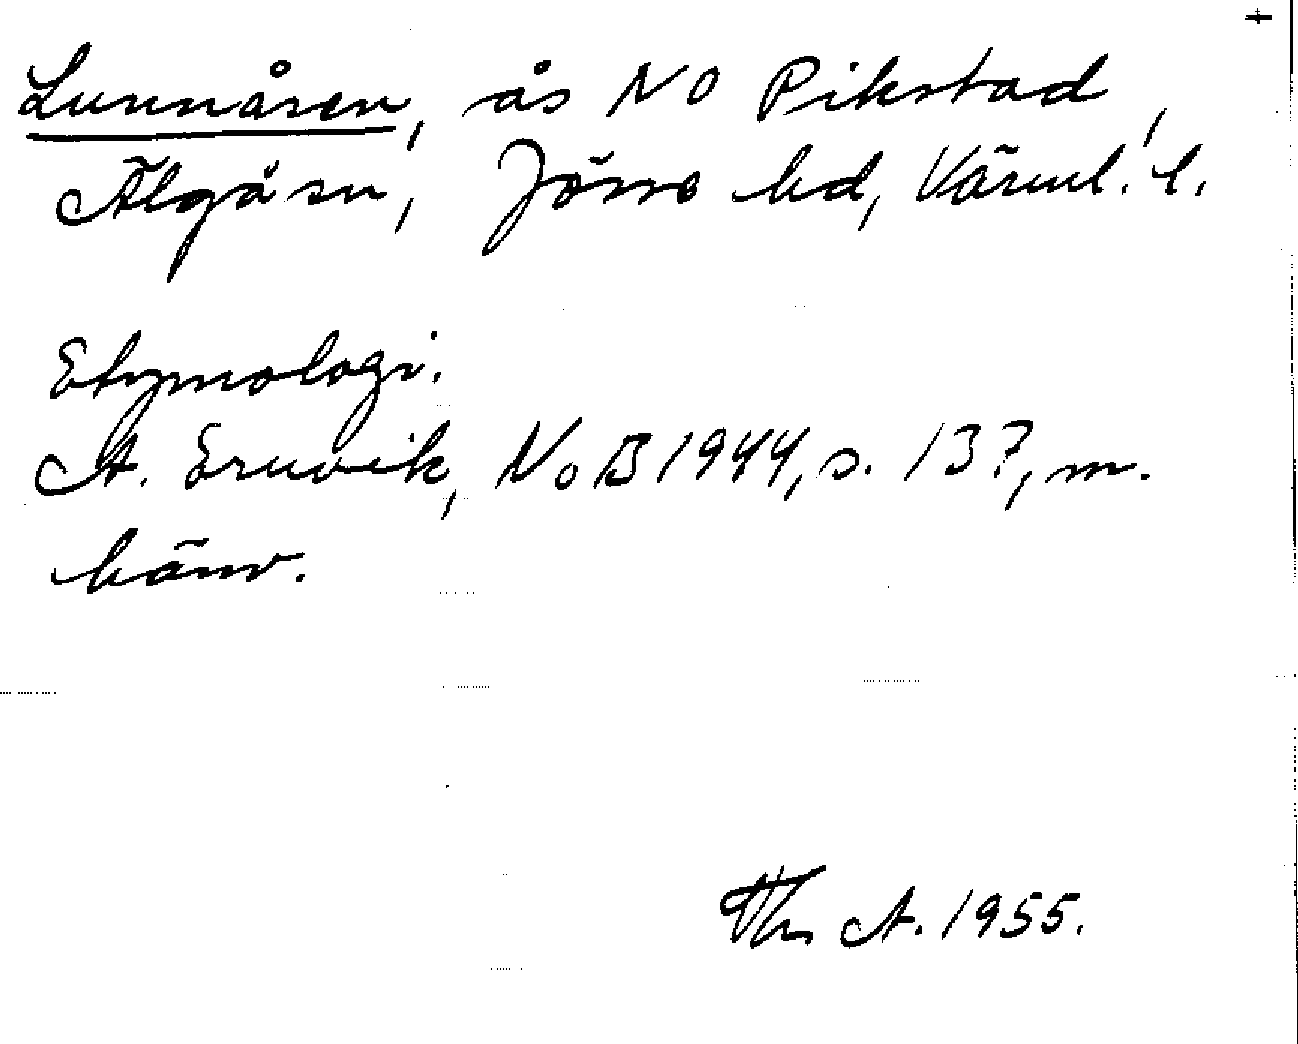 Lunnåsen, ås NO Pikstad,
Älgå sn, Jösse hd, Värml. l.
Etymologi.
A. Ernvik, NoB 1944, s. 137, m.
hänv.
Th A. 1955.